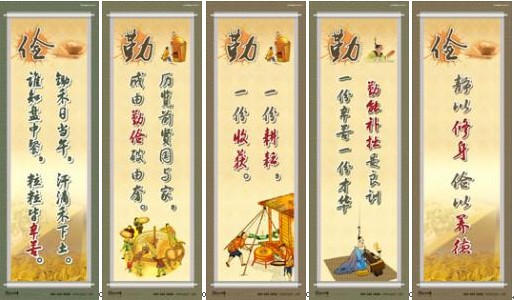 俭
锄禾日当午。汗滴禾下土。
谁知盘中餐。粒粒皆辛苦。
勤
历览前贤国与家，
成由勤俭破由奢。
勤
一份耕耘，
一份收获。
勤
勤能补拙是良训
一份辛苦一份才华
俭
静以修身
俭以养德